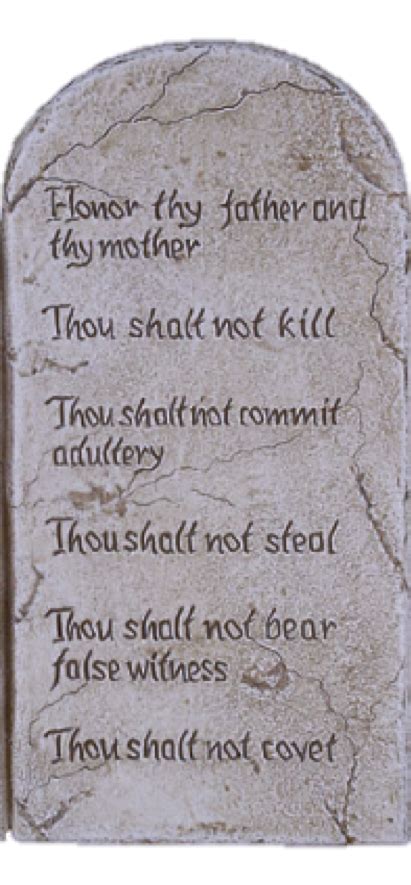 Honor thy father and
thy mother
Thou shalt not kill
Thou shalt not commit
adultery
Thou shalt not steal
Thou shalt not bear
false witness
Thou shalt not covet